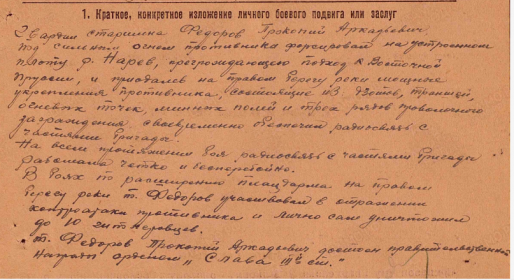 1. Краткое, конкретное изложение личного боевого подвига или заслуг
Гвардии старшина Федоров Прокопий Аркадьевич,
под сильным огнем противника форсировал на устроенном
плоту р. Нарев, преграждающую подход к Восточной
Пруссии, и преодолев на правом берегу реки мощные
укрепления противника, состоящие из дзотов, траншей,
огневых точек, минных полей и трех рядов проволочного
заграждения, своевременно обеспечил радиосвязь с
частями бригады.
На всем протяжении боя радиосвязь с частями бригады
работала четко и бесперебойно.
В боях по расширению плацдарма на правом
берегу реки т. Федоров участвовал в отражении
контратаки противника и лично сам уничтожил
до 10 гитлеровцев.
т. Федоров Прокопий Аркадьевич достоин правительственной
награды орденом "Слава III ст."